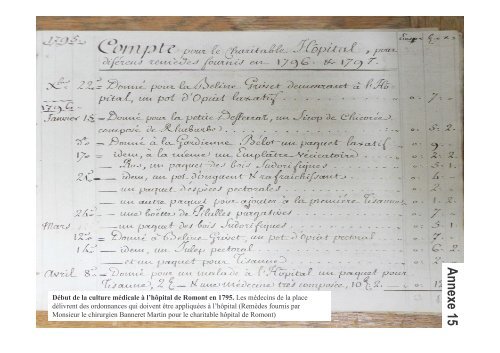 1795. Compte pour le charitable Hôpital, pour
diferens remedes fournis en 1796. & 1797.
Xbre 22. Donné pour la Beline Griset demeurant à l'Hô-
pital, un pot d'Opiat laxatif 7.
1796.
Janvier 15. Donné pour la petite un Sirop de Chicorée
composé de Rhubarbe 5. 2.
Donné à la Gardienne Bélot un paquet laxatif 9.
17. idem, à la meme un Emplâtre Vesicatoire 2. 2.
un paquet des bois Sudorifiques 5. 1.
idem, un pot d'onguent & rafraichissant 6.
un paquet despéces pectorales 2.
un autre paquet pour ajouter à la première Tisanne 1. 2.
une boette de Pilulles purgatives 7.
Mars un paquet des bois Sudorifiques 5. 1.
12. Donné à Beline Griset, un pot d'Opiat pectoral 7.
idem, un Julep pectoral 6. 2.
et un paquet pour Tisanne 2.
Avril 8. Donné pour un malade à l'Hôpital un paquet pour
Tisanne, & une médecine tres composée,
Début de la culture médicale à l'hôpital de Romont en 1795. Les médecins de la place
délivrent des ordonnances qui doivent être appliquées à l'hôpital (Remèdes fournis par
Monsieur le chirurgien Banneret Martin pour le charitable hôpital de Romont)
Annexe 15